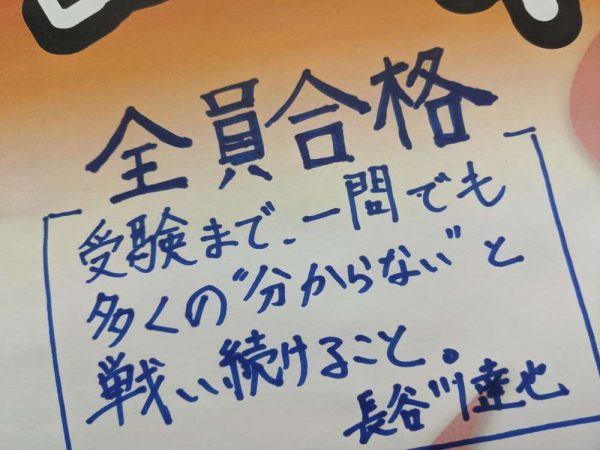 全員合格
受験まで、一問でも
多くの"分からない"と
戦い続けること。
長谷川達也